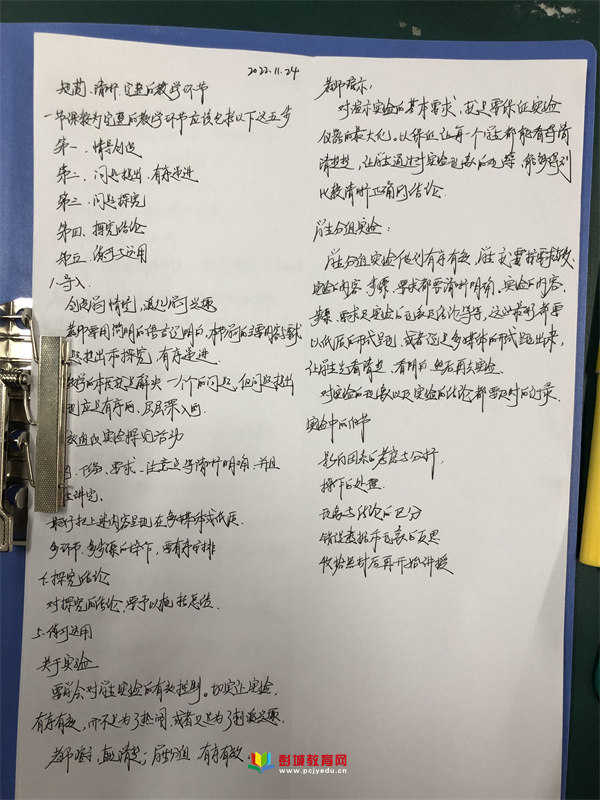 2022.11.24
规范、清晰、完整的教学环节
一节课较为完整的教学环节应该包括以下这五步
第一、情景创设
第二、问题提出、有序递进
第三、问题探究
第四、探究结论
第五、练习与运用
1.导入
创设问情景,激起学习兴趣
教师要用简明的语言说明
问题提出和探究,有序递进
教学的本质就是解决一个个的问题,但问题提出
应是有序的、层层深入的
组织实验探究活动
任务、要求、注意点等清晰明确,并且
讲完。
最好把上述内容呈现在多媒体或纸质
多环节、多步骤的操作,要有序安排
探究结论
对探究的结论,要予以概括总结。
5.练习运用
关于实验
要学会对学生实验的有效控制。切实让实验
有序有效,而不是为了热闹,或者只是为了刺激兴趣
老师演示,直观清楚;学生分组,有序有效。
老师演示:
对演示实验的基本要求,就是要保证实验
仪器的最大化,以保证让每一个学生都能看得清
清楚楚,让学生通过对实验现象的观察,能够得到
比较清晰正确的结论。
学生分组实验:
学生分组实验做到有序有效,学生
实验内容、步骤、要求都要清晰明确,实验的内容、
步骤、要求及实验的现象及结论等等,这些最好都要
以纸质的形式呈现,或者通过多媒体的形式呈现出来,
让学生先看清楚、看明白,然后再去实验
对实验的现象以及实验的结论都要及时的记录
实验中的细节
影响因素的考虑与分析
操作的处理
现象与结论的区分
错误数据和现象的反思
收拾器材后再开始讲授
彭城教育网
www.pcjyedu.cn